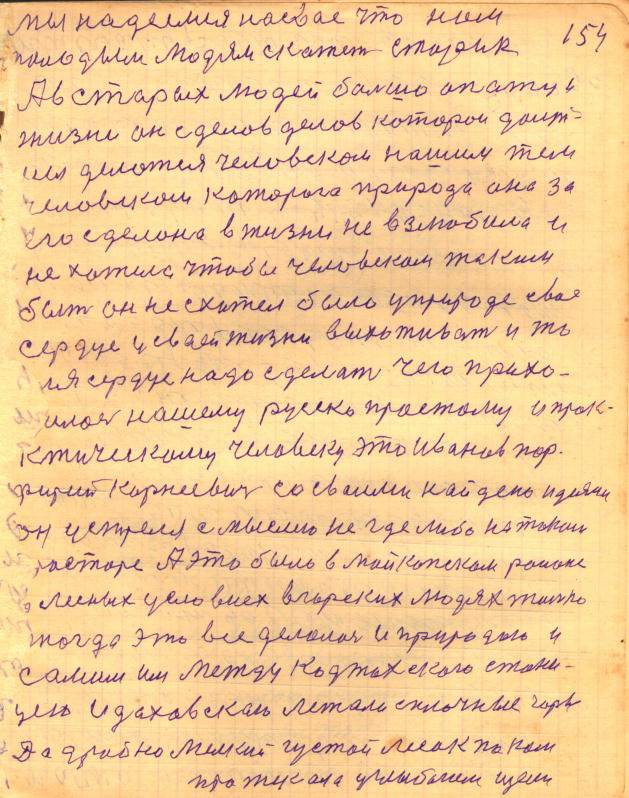 мы надеемся на свое что нам
154
молодым людям скажет старик
А в старых людей было опату и
жизни он сделов делов которой долж-
ися делатся человеком нашим тем
человеком которога природа она за
его сделона в жизни не взлюбила и
не хотела чтобы человеком таким
быть он не схотел было у природе свое
сердце и своей жизни выхаживат и то
ля сердце надо сделат чего прихо-
илося нашему русско простому и прак-
ктическому человеку это Иванов пор.
фирий Корнеевич со своими найдено идеями
он устрелся с мыслею не где либо на таком
расторе А это было в майкопском районе
в лесных условиех в горских людях только
тогда это все делолося и природою и
самим им между Каджохского стани-
цею и даховскаю лежали сплочные горы
Да дробно мелкий густой лесок по ком
протекала углыбоким щели